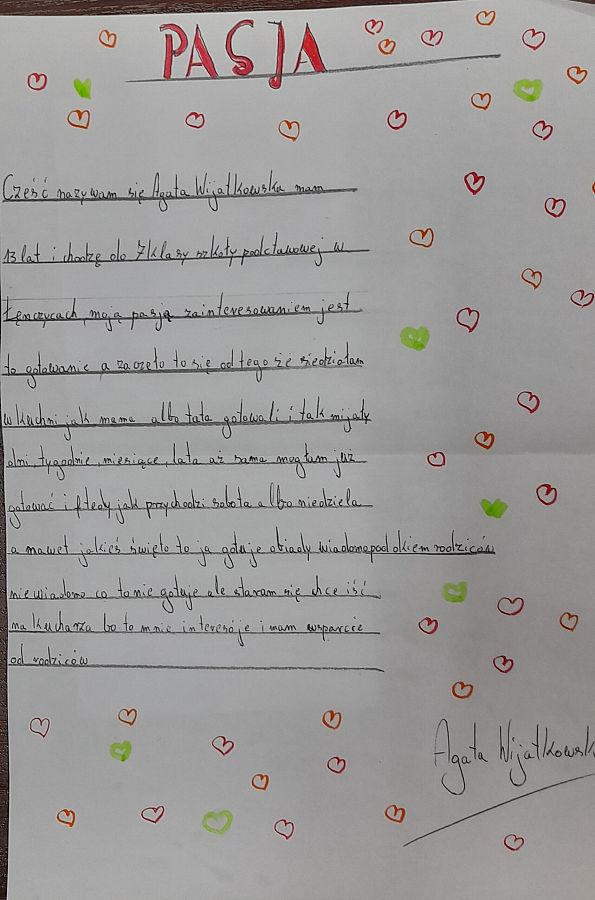 PASJA
Cześć nazywam się Agata Wijatkowska mam
13 lat i chodzę do 7 klasy szkoły podstawowej w
Łęnczycach, moją pasją zainteresowaniem jest
to gotowanie a zaczeło to się od tego że siedziałam
w kuchni jak mama albo tata gotowali i tak mijały
dni, tygodnie, miesiące, lata aż sama mogłam już
gotować i ftedy jak przychodzi sobota albo niedziela
a nawet jakieś święto to ja gotuje obiady wiadomo pod okiem rodziców
nie wiadomo co to nie gotuje ale staram się chce iść
na kucharza bo to mnie interesóje i mam wsparcie
od rodziców
Agata Wijatkowsk